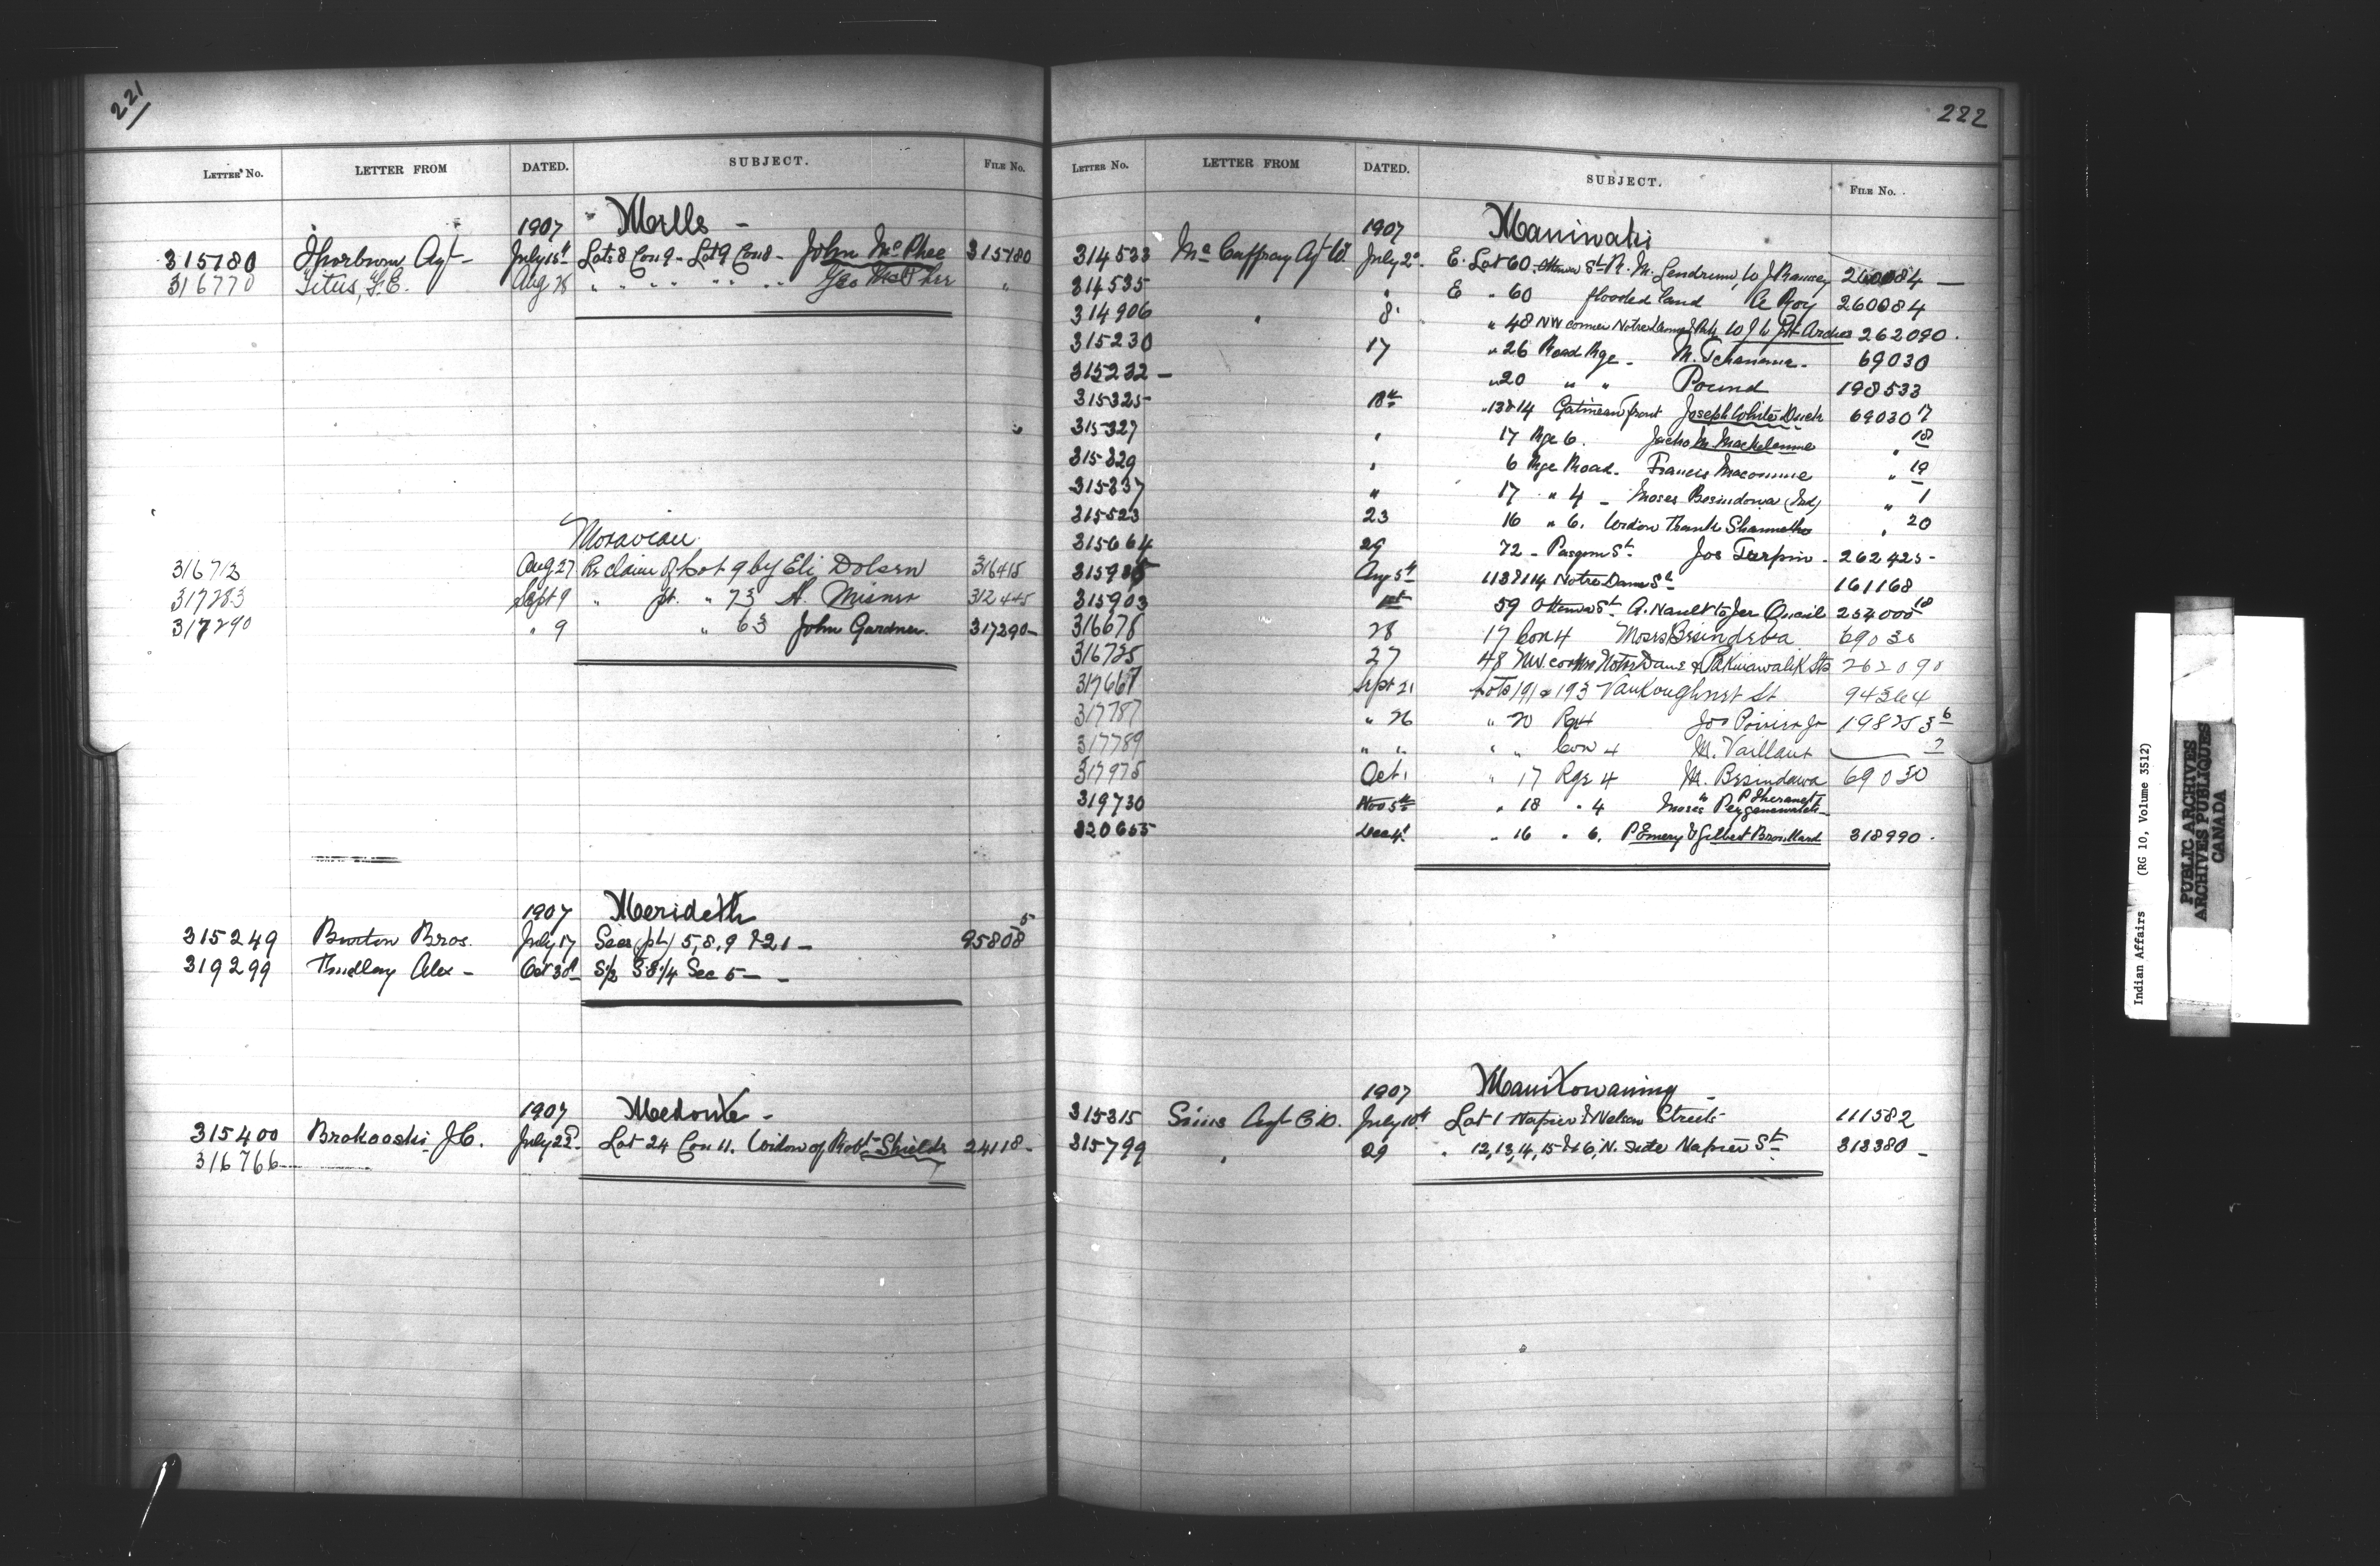 221
LETTER No. LETTER FROM DATED. SUBJECT. FILE No.
1907 Mills -
315780 Thorburn Agt - July 15th Lot 8 Con 9 - Lot 9 Con 8 - John McPhee 315780
316770 Titus, F.E. Aug 28 " " " " " " Geo McPhee "
Moravian
316713 Aug 27 Re claim of Lot 9 by Eli Dolsen 316415
317283 Sept 9 " pt. " 73 A. Misner 312445
317290 " 9 " 63 John Gardner. 317290 -
1907 Merideth
315249 Burton Bros. July 17 Secs (pt) 5, 8, 9 & 21 - 95808 5
319299 Alex - Oct 30th S/2 S.E. 1/4 Sec 5 - -
1907 Medonte -
315400 Brokooski J.C. July 22d Lot 24 Con 11. Widow of Robt Shields 24118 -
316766
222
LETTER No. LETTER FROM DATED. SUBJECT. FILE No.
1907 Maniwaki
314533 McCaffray Agt W. July 2d E. Lot 60 Ottawa St R. M. Lendrum, to J Ramsey 260084 -
314535 " E " 60 flooded land A Roy 260084
314906 " 8 " 48 NW corner Notre Dame & 262090 .
315230 17 " 26 Road Rge - M. Tchename - 69030
315232 - " 20 " " Pound 198533
315325 18th " 13 & 14 Gatineau front Joseph White Duck 69030 17
315327 " 17 Rge 6. " 18
315329 " 6 Rge Road - Francis Macounne " 19
315337 " 17 " 4 - Moses Besindowa (Ind) " 1
315523 23 16 " 6. Widow Thank " 20
315664 29 72 - St. Jos Turpin - 262425 -
Aug 5th 113 & 114 Notre Dame St 161168
315903 1st 59 Ottawa St. A. Nault to Jer Quail 254000 18
316678 28 17 Con 4 Moses Besindowa 69030
316725 27 48 NW. corner Notre Dame & Sts 262090
317667 Sept 21 Lots 191 & 193 Vankoughnet St 94364
317787 " 26 " 20 Rge 4 Jos Poirier Jr 6
317789 " " " " Con 4 M. Vaillant 7
317975 Oct 1 " 17 Rge 4 M. Besindawa 69030
319730 Nov 5th " 18 " 4 Moses
320655 Dec 4th " 16 " 6. P Emery & Gilbert Brouillard 318990 .
1907 Manitowaning -
315315 Sims Agt C.W. July 10th Lot 1 Napier & Nelson Streets 111582
315799 " 29 " 12, 13, 14, 15 & 16, N. side Napier St 313380 -
Indian Affairs (RG 10, Volume 3512)
PUBLIC ARCHIVES
ARCHIVES PUBLIQUES
CANADA